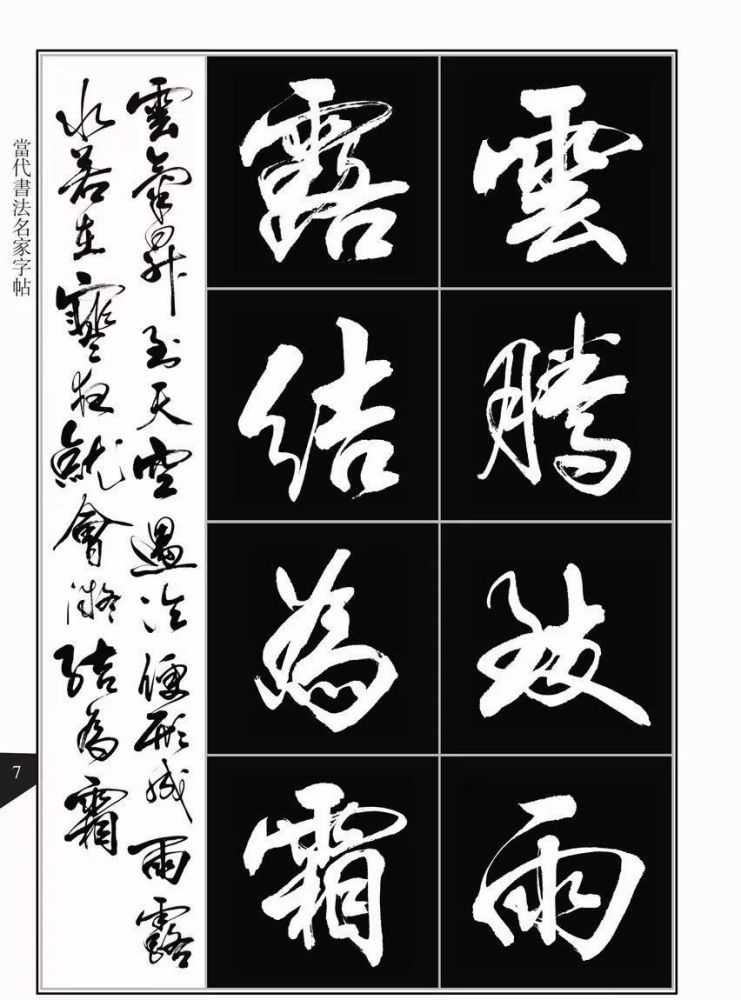 雲騰致雨
露結為霜
雲氣昇到天空遇冷便形成雨露
水若在寒夜就會凝結為霜
當代書法名家字帖
7